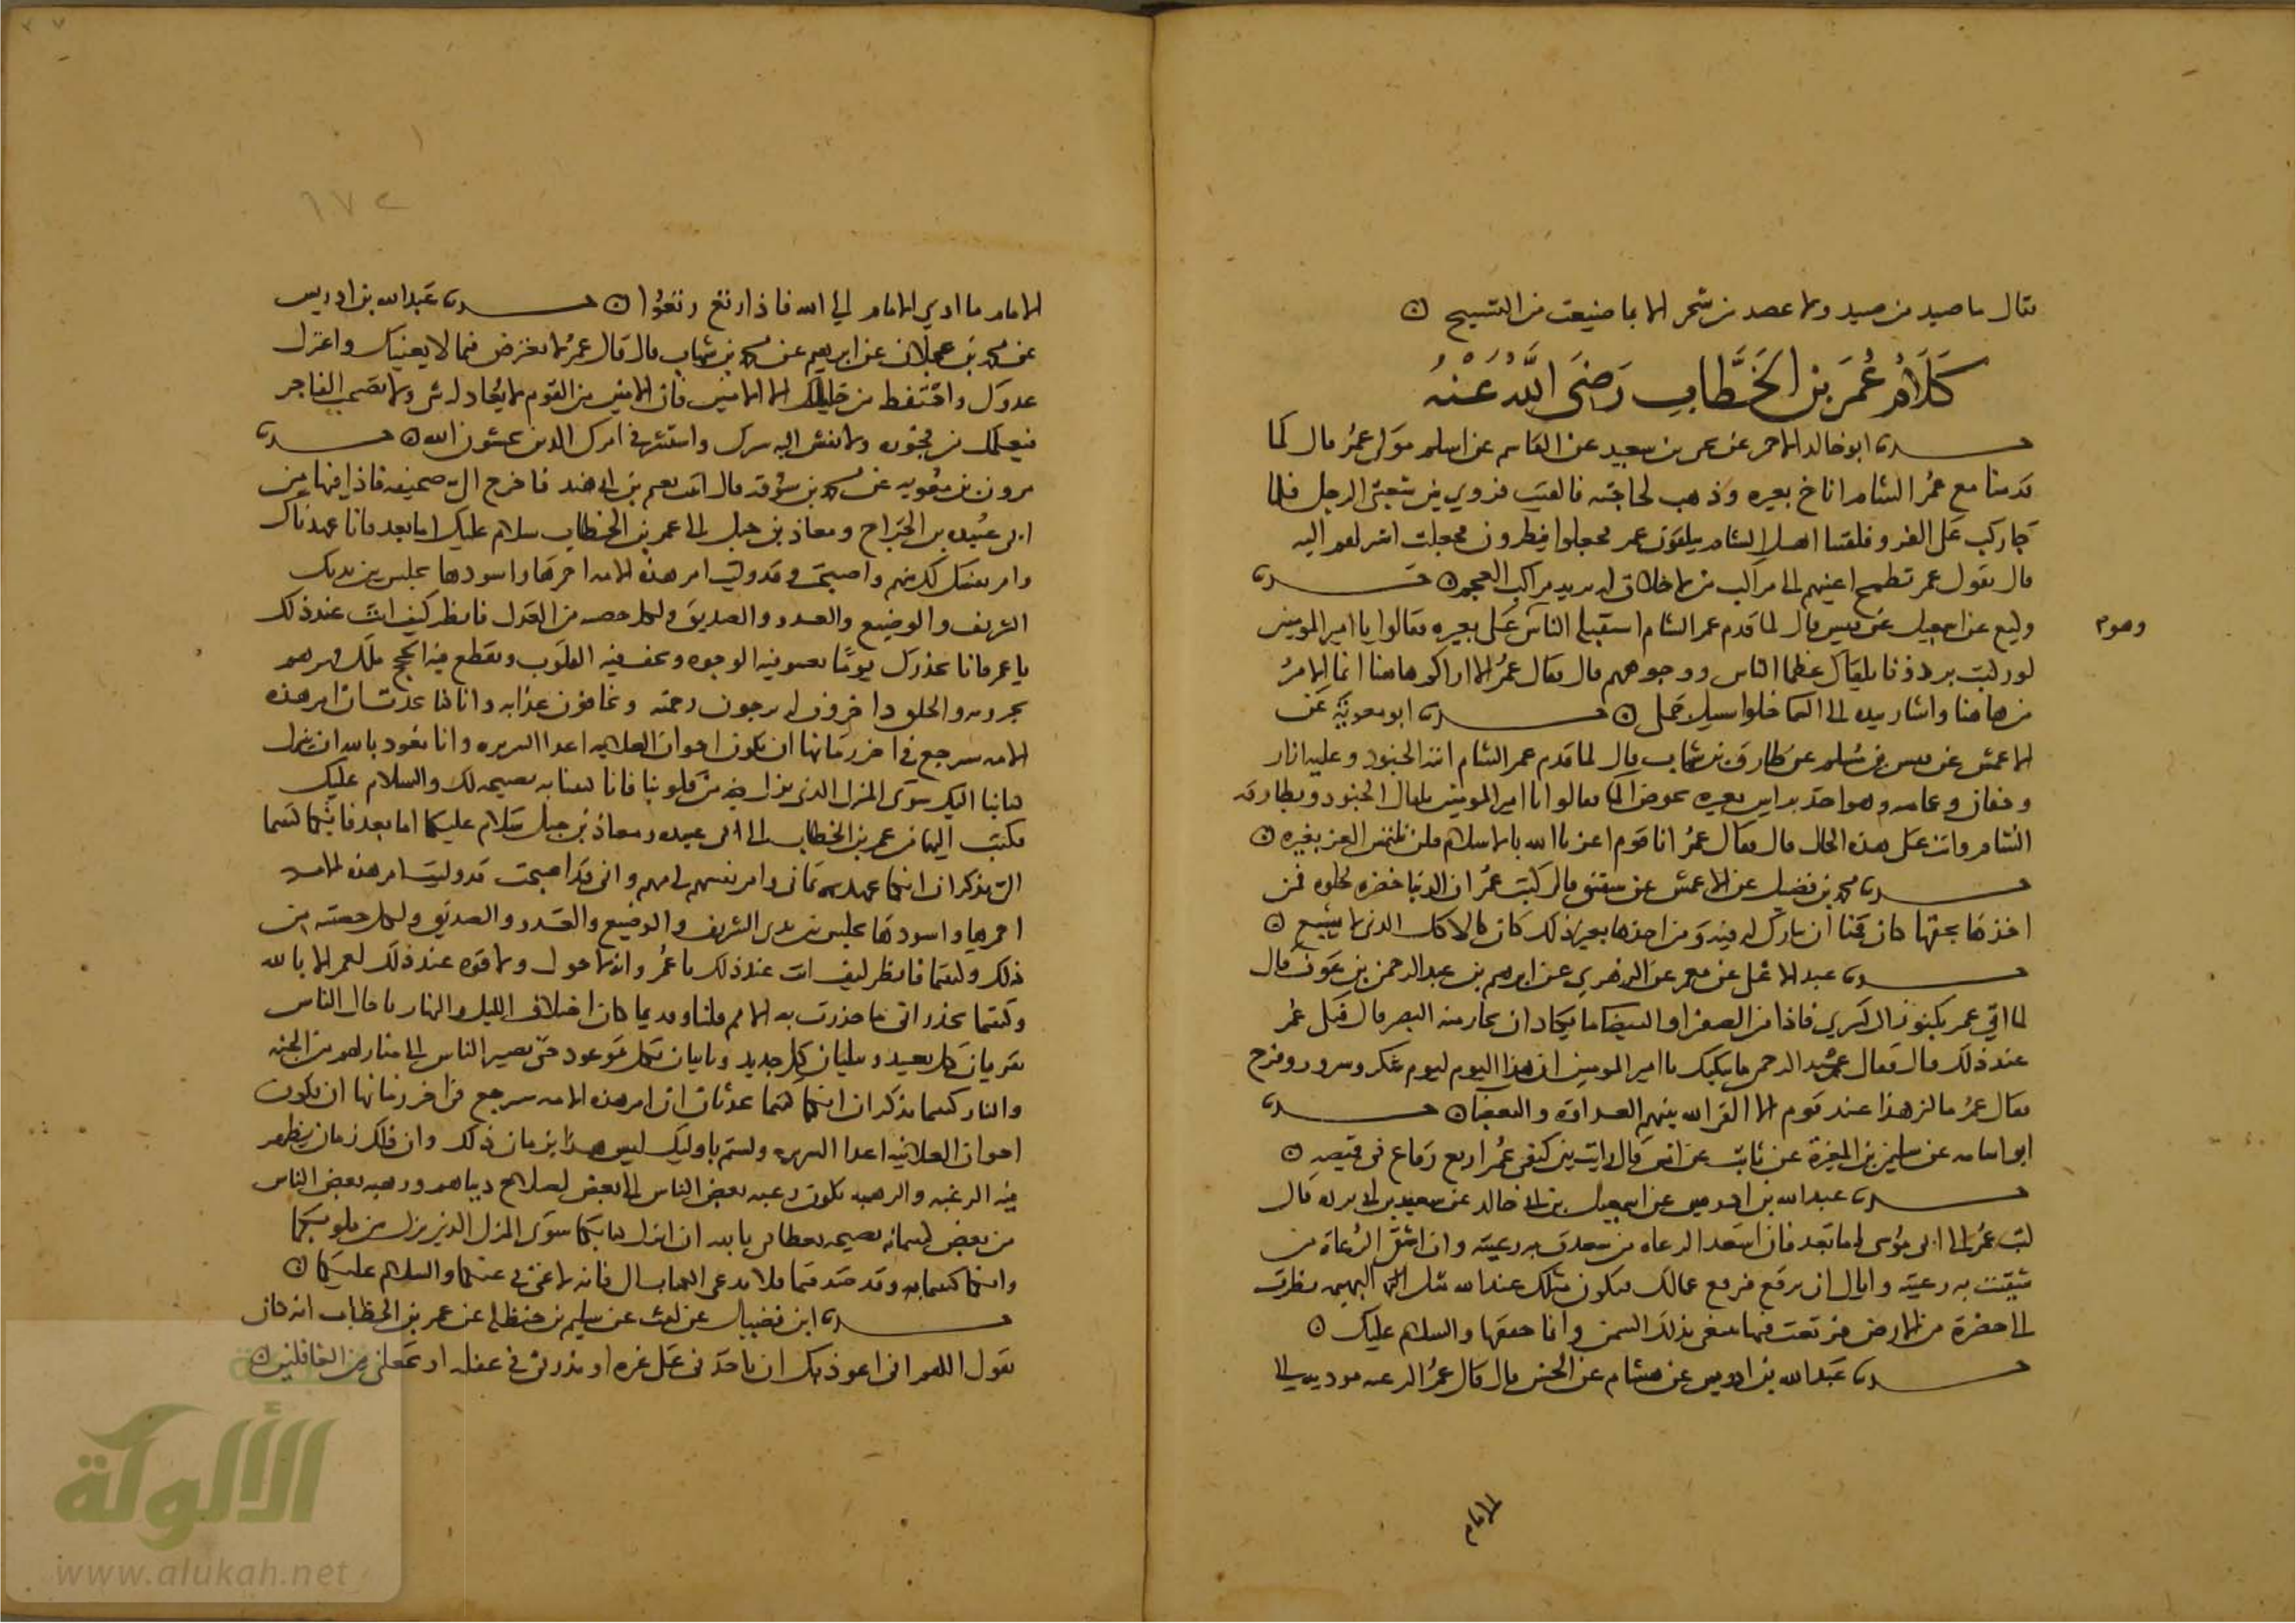 فقال ما صيد من صيد ولا عضد من شجر الا بما ضيعت من التسبيح ٥
كَلَامُ عُمَرَ بْنِ الْخَطَّابِ رَضِيَ اللَّهُ عَنْهُ
حدثنا ابو خالد الاحمر عن يحيى بن سعيد عن القاسم عن اسلم مولى عمر قال لما
قدمنا مع عمر الشام اناخ بعيره وذهب لحاجته فالقيت فروتي بين شعبتي الرحل فلما
جا ركب على الفرو فلقينا اهل الشام يتلقون عمر فجعلوا ينظرون فجعلت اشير لهم اليه
قال يقول عمر تطمح اعينهم الى مراكب من لا خلاق له يريد مراكب العجم ٥ حدثنا
وكيع عن اسمعيل عن قيس قال لما قدم عمر الشام استقبله الناس على بعيره فقالوا يا امير المومنين
وهو
لو ركبت برذونا يلقاك عظما الناس ووجوههم قال فقال عمر الا اراكم هاهنا انما الامر
من هاهنا واشار بيده الى السما خلوا سبيل جملي ٥ حدثنا ابو معوية عن
الاعمش عن قيس بن مسلم عن طارق بن شهاب قال لما قدم عمر الشام اتته الجنود وعليه ازار
وخفان وعمامه وهو اخذ براس بعيره يخوض الما فقالوا يا امير المومنين تلقاك الجنود وبطارقه
الشام وانت على هذه الحال قال فقال عمر انا قوم اعزنا الله بالاسلام فلن نلتمس العز بغيره ٥
حدثنا محمد بن فضيل عن الاعمش عن شقيق قال كتب عمر ان الدنيا خضره حلوه فمن
اخذها بحقها كان قمنا ان يبارك له فيه ومن اخذها بغير ذلك كان كالاكل الذي لا يشبع ٥
حدثنا عبد الاعلى عن معمر عن الزهري عن ابرهيم بن عبد الرحمن بن عوف قال
لما اتي عمر بكنوز ال كسري فاذا من الصفرا والبيضا ما يكاد ان يحار منه البصر قال فبكى عمر
عند ذلك قال فقال عبد الرحمن ما يبكيك يا امير المومنين ان هذا اليوم ليوم شكر وسرور وفرح
فقال عمر ما كثر هذا عند قوم الا القى الله بينهم العداوة والبغضا ٥ حدثنا
ابو اسامه عن سليمن بن المغيرة عن ثابت عن انس قال رايت بين كتفي عمر اربع رقاع في قميصه ٥
حدثنا عبد الله بن ادريس عن اسمعيل بن ابي خالد عن سعيد بن ابي برده قال
كتب عمر الى ابي موسى اما بعد فان اسعد الرعاه من سعدت به رعيته وان اشقى الرعاة من
شقيت به رعيته واياك ان ترتع فيرتع عمالك فيكون مثلك عند الله مثل البهيمه نظرت
الى خضرة من الارض فرتعت فيها تبتغي بذلك السمن وانما حتفها والسلام عليك ٥
حدثنا عبد الله بن ادريس عن هشام عن الحسن قال قال عمر الرعيه موديه الى
الامام
الامام ما ادي الامام الي الله فاذا رتع رتعوا ٥ حدثنا عبد الله بن ادريس
عن محمد بن عجلان عن ابرهيم عن محمد بن شهاب قال قال عمر لا تعترض فيما لا يعنيك واعتزل
عدوك واحتفظ من خليلك الا الامين فان الامين من القوم لا يعادله شي ولا تصحب الفاجر
فيعلمك من فجوره ولا تفش اليه سرك واستشر في امرك الذين يخشون الله ٥ حدثنا
مرون بن معويه عن محمد بن سوقه قال اتيت نعيم بن ابي هند فاخرج الي صحيفه فاذا فيها من
ابي عبيده بن الجراح ومعاذ بن جبل الى عمر بن الخطاب سلام عليك اما بعد فانا عهدناك
وامر نفسك لك مهم واصبحت وقد وليت امر هذه الامه احمرها واسودها يجلس بين يديك
الشريف والوضيع والعدو والصديق ولكل حصه من العدل فانظر كيف انت عند ذلك
يا عمر فانا نحذرك يوما تعنو فيه الوجوه وتجف فيه القلوب وتقطع فيه الحجج ملك قهرهم
بجبروته والخلق داخرون له يرجون رحمته ويخافون عذابه وانا كنا نحدث ان امر هذه
الامه سيرجع في اخر زمانها ان يكون اخوان العلانيه اعدا السريره وانا نعوذ بالله ان ينزل
كتابنا اليك سوى المنزل الذي نزل من قلوبنا فانا كتبنا به نصيحه لك والسلام عليك
فكتب اليهما من عمر بن الخطاب الى ابي عبيده ومعاذ بن جبل سلام عليكما اما بعد فانكما كتبتما
الي تذكران انكما عهدتماني وامر نفسي لي مهم واني قد اصبحت قد وليت امر هذه الامه
احمرها واسودها يجلس بين يدي الشريف والوضيع والعدو والصديق ولكل حصته من
ذلك وكتبتما فانظر كيف انت عند ذلك يا عمر وانه لا حول ولا قوه عند ذلك لعمر الا بالله
وكتبتما تحذراني ما حذرت به الامم قبلنا وقديما كان اختلاف الليل والنهار باجال الناس
يقربان كل بعيد ويبليان كل جديد وياتيان بكل موعود حتى يصير الناس الى منازلهم من الجنه
والنار كتبتما تذكران انكما كنتما تحدثان ان امر هذه الامه سيرجع في اخر زمانها ان يكون
اخوان العلانيه اعدا السريره ولستم باوليك ليس هذا بزمان ذلك وان ذلك زمان يظهر
فيه الرغبه والرهبه تكون رغبه بعض الناس الى بعض لصلاح دنياهم ورهبه بعض الناس
من بعض كتبتما به نصيحه تعظاني بالله ان انزل كتابكما سوى المنزل الذي نزل من قلوبكما
وانكما كتبتما به وقد صدقتما فلا تدعا الكتاب الي فانه لا غنى لي عنكما والسلام عليكما ٥
حدثنا ابن فضيل عن ليث عن سليم بن حنظله عن عمر بن الخطاب انه كان
يقول اللهم اني اعوذ بك ان تاخذني على غره او تذرني في غفله او تجعلني من الغافلين ٥
الألوكة
www.alukah.net